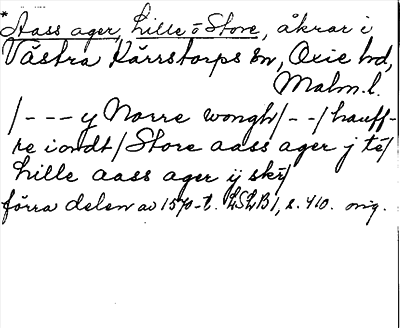 * Aass ager, Lille o Store, åkrar i
Västra Kärrstorps sn, Oxie hd,
Malm.l.
/- - - y Norre wongh/- -/hauff-
re iondt/Store aass ager j té/
Lille aass ager ij skr/
förra delen av 1570-t. LSLB1, s. 410. orig.